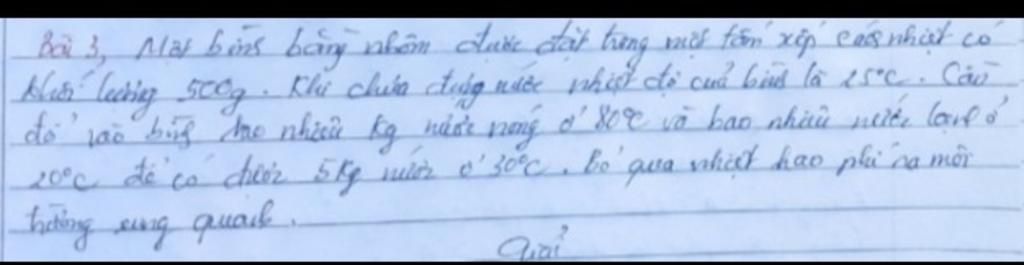 Bài 3, Một bình bằng nhôm được đặt trong một tấm xốp cách nhiệt có
khối lượng 500g. Khi chưa đựng nước nhiệt độ của bình là 25°C. Cần
đổ vào bình bao nhiêu kg nước nóng ở 80°C và bao nhiêu nước lạnh ở
20°C để có được 5kg nước ở 30°C. Bỏ qua nhiệt hao phí ra môi
trường xung quanh.
Giải